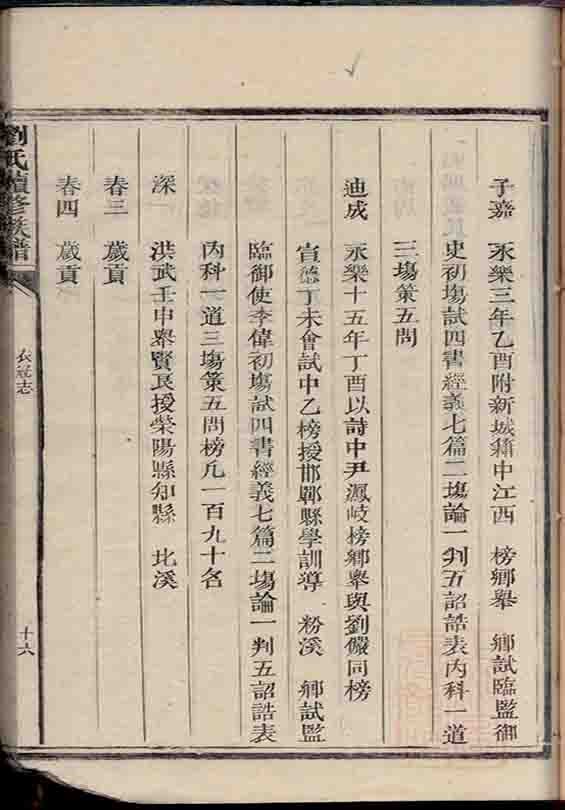 子嘉　永樂三年乙酉附新城籍中江西　榜鄉舉　鄉試臨監御
史初塲試四書經義七篇二塲論一判五詔誥表內科一道
三塲策五問
迪成　永樂十五年丁酉以詩中尹鳳岐榜鄉舉與劉儼同榜
宣德丁未會試中乙榜授邯鄲縣學訓導　粉溪　鄉試監
臨御使李偉初塲試四書經義七篇二塲論一判五詔誥表
內科一道三塲策五問榜凡一百九十名
深一　洪武壬申舉賢良授榮陽縣知縣　北溪
春三　歲貢
春四　歲貢
劉氏續修族譜
衣冠志
十六